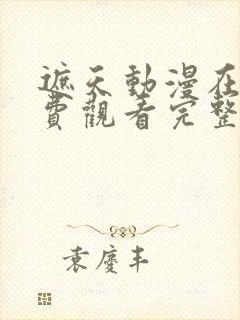 遮天動漫在
費觀看完整
袁慶丰